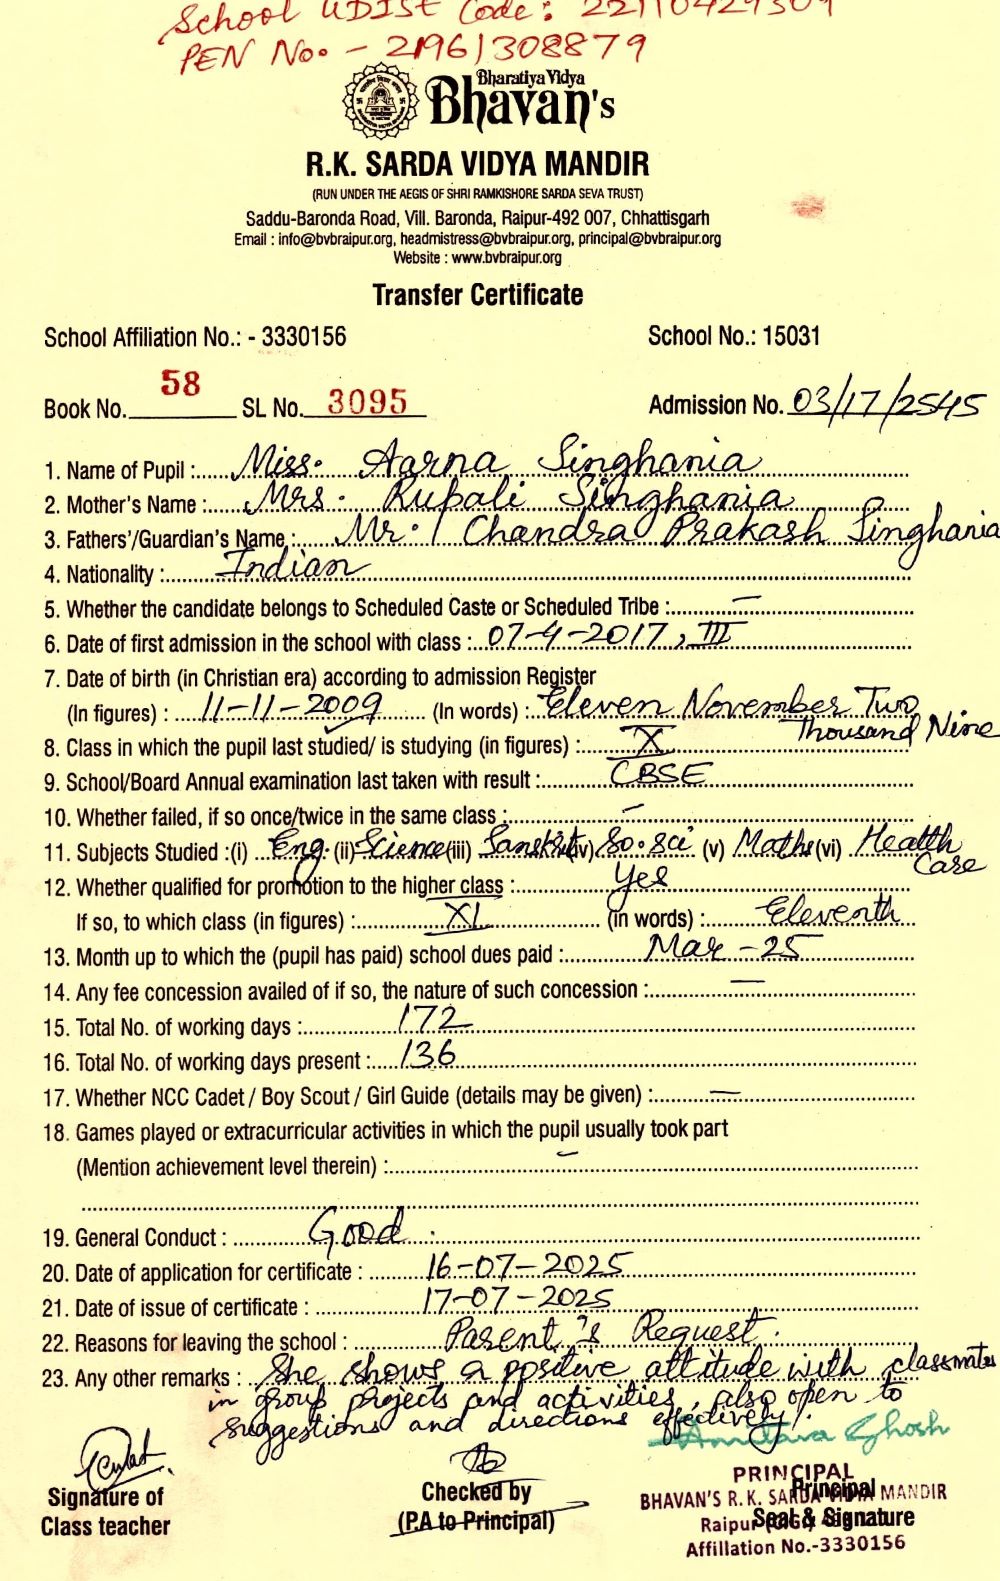 School UDISE Code: 22110429309
PEN No. - 21961308879
Bharatiya Vidya
Bhavan's
R.K. SARDA VIDYA MANDIR
(RUN UNDER THE AEGIS OF SHRI RAMKISHORE SARDA SEVA TRUST)
Saddu-Baronda Road, Vill. Baronda, Raipur-492 007, Chhattisgarh
Email : info@bvbraipur.org, headmistress@bvbraipur.org, principal@bvbraipur.org
Website : www.bvbraipur.org
Transfer Certificate
School Affiliation No.: - 3330156 School No.: 15031
Book No. 58 SL No. 3095 Admission No. 03/17/2545
1. Name of Pupil : Miss. Aarna Singhania
2. Mother's Name : Mrs. Rupali Singhania
3. Fathers'/Guardian's Name : Mr. Chandra Prakash Singhania
4. Nationality : Indian
5. Whether the candidate belongs to Scheduled Caste or Scheduled Tribe : —
6. Date of first admission in the school with class : 07-4-2017, III
7. Date of birth (in Christian era) according to admission Register
(In figures) : 11-11-2009 (In words) : Eleven November Two
Thousand Nine
8. Class in which the pupil last studied/ is studying (in figures) : X
9. School/Board Annual examination last taken with result : CBSE
10. Whether failed, if so once/twice in the same class : —
11. Subjects Studied :(i) Eng. (ii) Science (iii) Sanskrit (iv) So.sci (v) Maths (vi) Health
Care
12. Whether qualified for promotion to the higher class : Yes
If so, to which class (in figures) : XI (in words) : Eleventh
13. Month up to which the (pupil has paid) school dues paid : Mar - 25
14. Any fee concession availed of if so, the nature of such concession : —
15. Total No. of working days : 172
16. Total No. of working days present : 136
17. Whether NCC Cadet / Boy Scout / Girl Guide (details may be given) : —
18. Games played or extracurricular activities in which the pupil usually took part
(Mention achievement level therein) : -
19. General Conduct : Good
20. Date of application for certificate : 16-07-2025
21. Date of issue of certificate : 17-07-2025
22. Reasons for leaving the school : Parent's Request.
23. Any other remarks : She shows a positive attitude with classmates
in group projects and activities, also open to
suggestions and directions effectively.
Amitava Ghosh
Signature of
Class teacher
Checked by
(P.A to Principal)
Principal
Seal & Signature
PRINCIPAL
BHAVAN'S R. K. SARDA VIDYA MANDIR
Raipur
Affillation No.-3330156